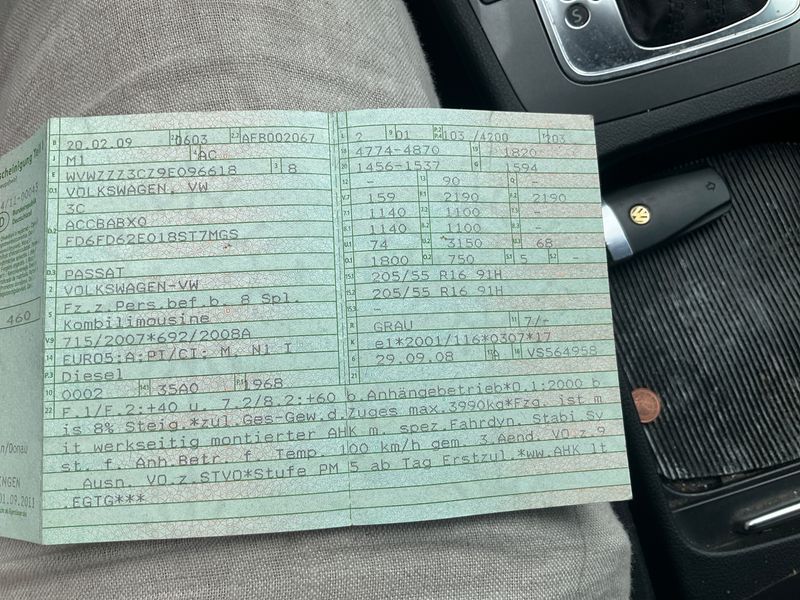 scheinigung Teil I
460
n/Donau
INGEN
01.09.2011
B 20.02.09 0603 AFB002067
J M1 4 AC
E WVWZZZ3CZ9E096618 3 8
D.1 VOLKSWAGEN, VW
3C
D.2 ACCBABX0
FD6FD62E018ST7MGS
-
D.3 PASSAT
2 VOLKSWAGEN-VW
5 Fz.z.Pers.bef.b. 8 Spl.
Kombilimousine
V.9 715/2007*692/2008A
14 EURO5;A;PI/CI; M, N1 I
P.3 Diesel
10 0002 14.1 35A0 P.1 1968
L 2 9 01 P.2 P.4 103 /4200 T 203
18 4774-4870 19 1820
20 1456-1537 G 1594
12 - 13 90 Q -
V.7 159 F.1 2190 F.2 2190
7.1 1140 7.2 1100 7.3 -
8.1 1140 8.2 1100 8.3 -
U.1 74 U.2 3150 U.3 68
O.1 1800 O.2 750 S.1 5 S.2 -
15.1 205/55 R16 91H
15.2 205/55 R16 91H
15.3 -
R GRAU 11 7/-
K e1*2001/116*0307*17
6 29.09.08 17 A 16 VS564958
21
22 F.1/F.2:+40 u. 7.2/8.2:+60 b.Anhängebetrieb*O.1:2000 b
is 8% Steig.*zul.Ges-Gew.d.Zuges max.3990kg*Fzg.ist m
it werkseitig montierter AHK m. spez.Fahrdyn. Stabi.Sy
st. f. Anh.Betr. f. Temp. 100 km/h gem. 3.Aend. VO.z.9
. Ausn. VO.z.STVO*Stufe PM 5 ab Tag Erstzul.*ww.AHK lt
.EGTG***
S